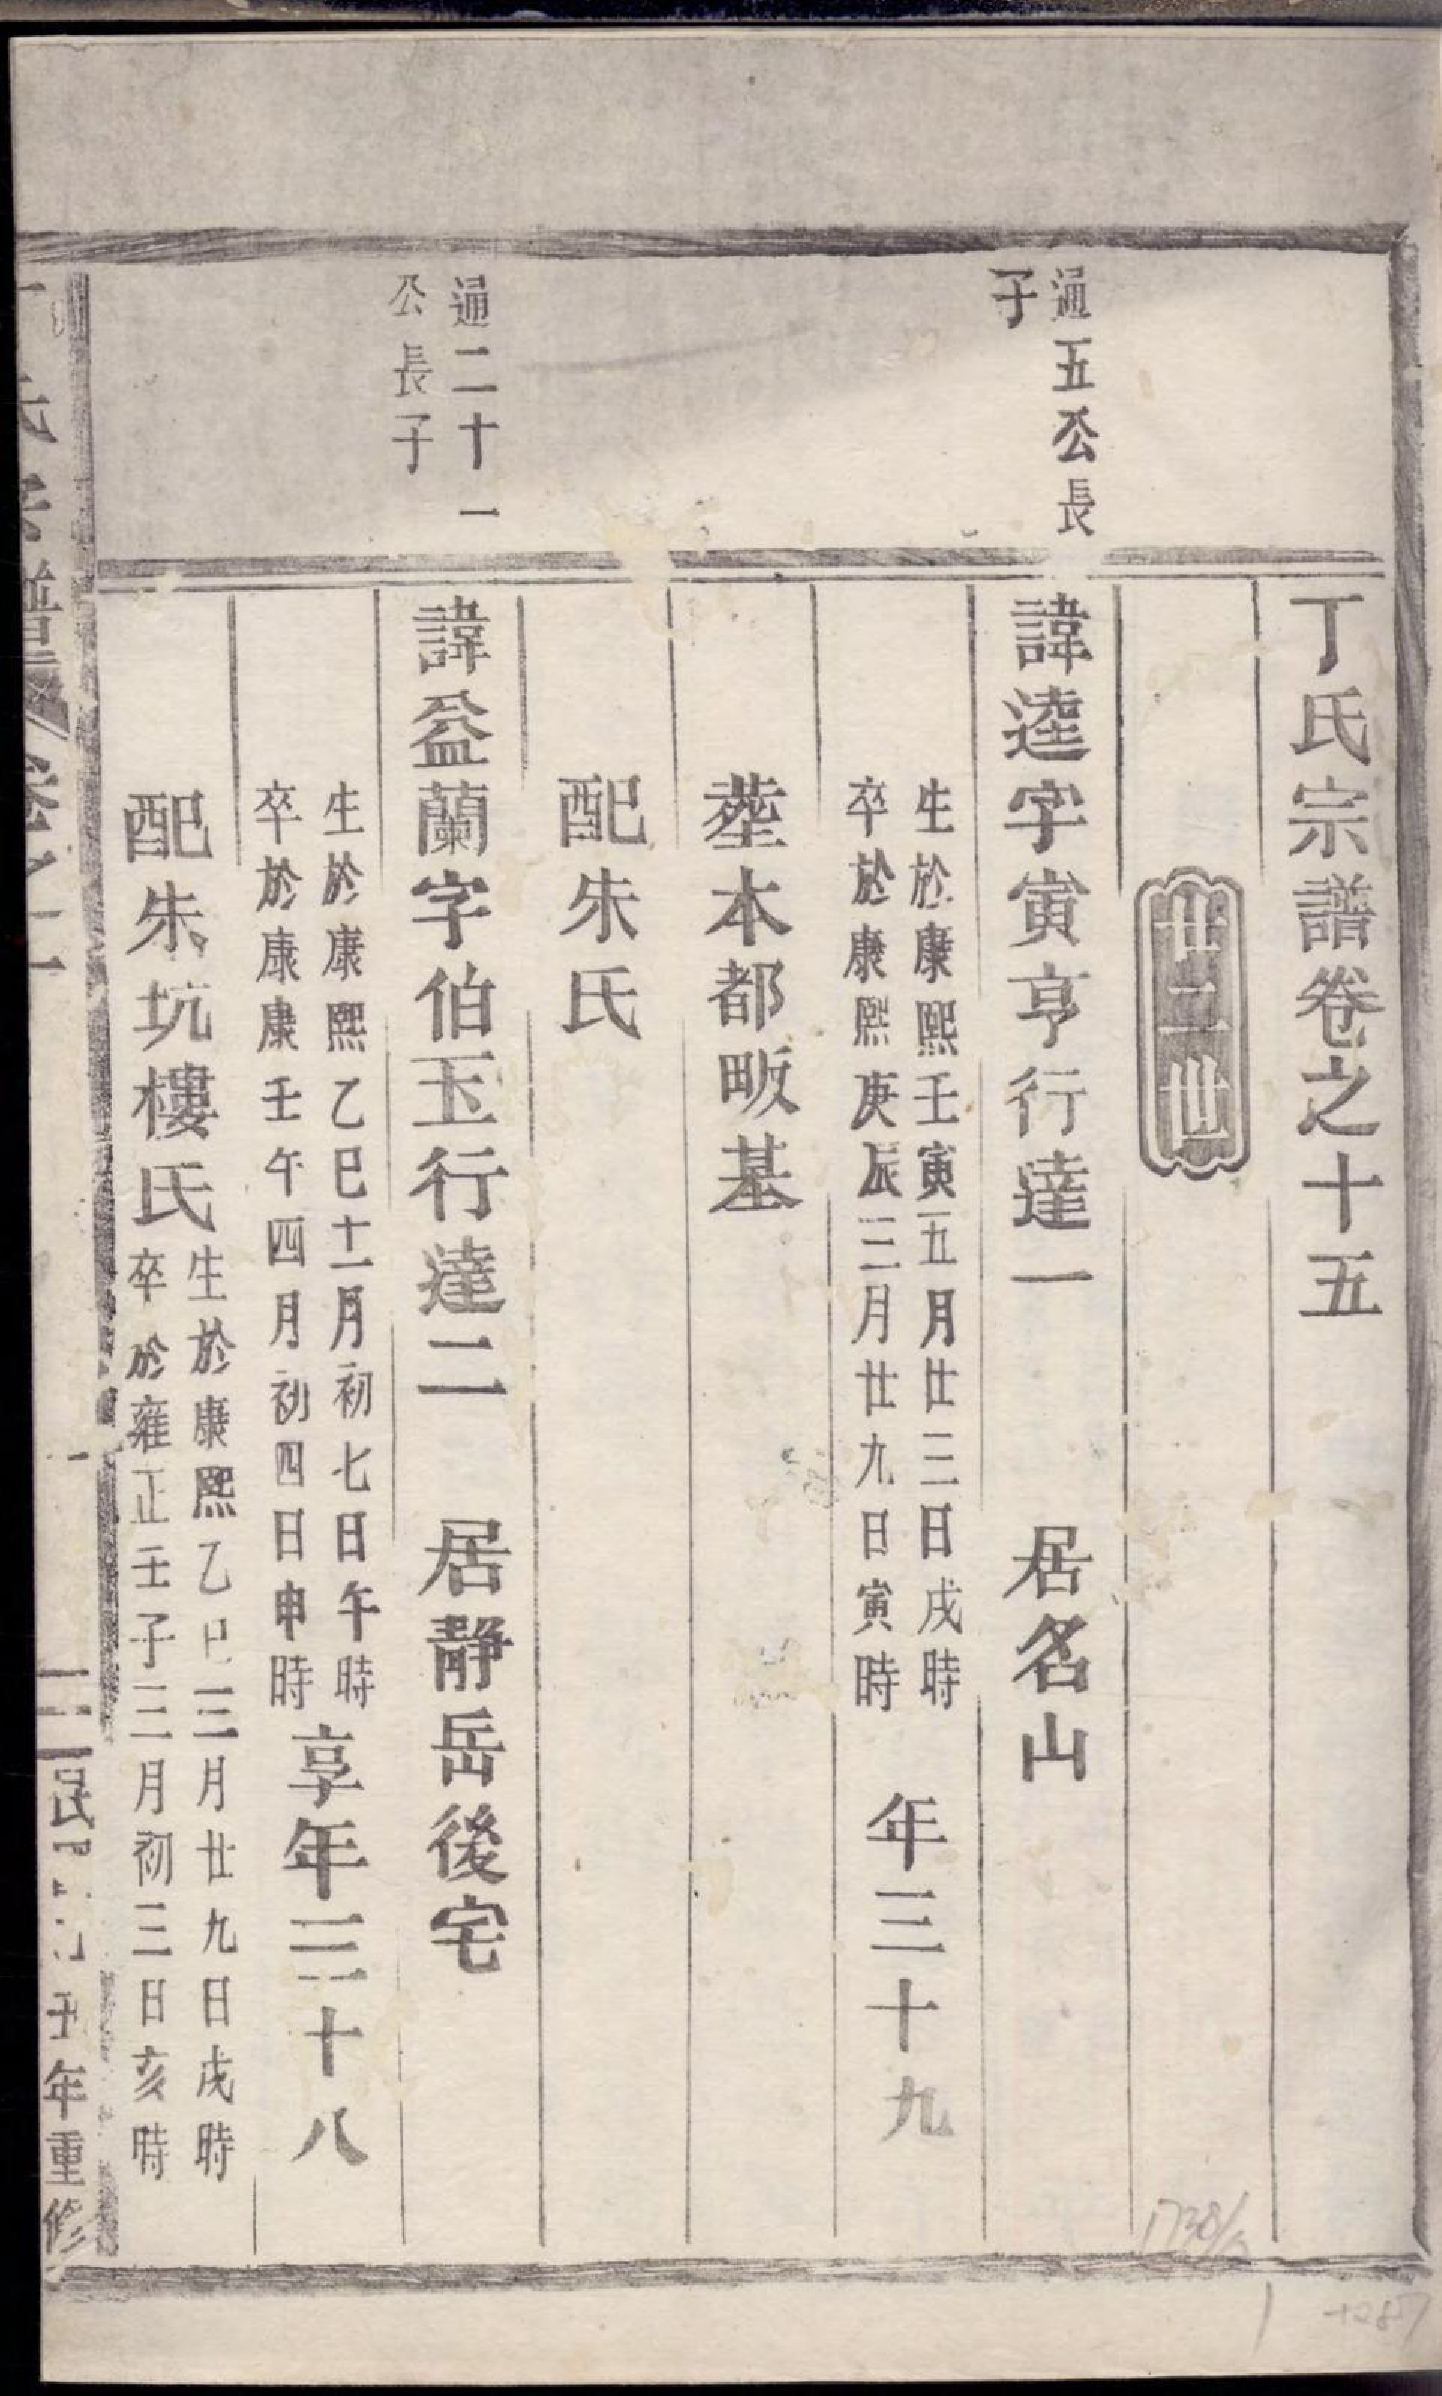 丁氏宗譜卷之十五
廿二世
通五公長
子
諱逵字寅亨行達一　居名山
生於康熙壬寅五月廿三日戌時
卒於康熙庚辰三月廿九日寅時
年三十九
塟本都畈基
配朱氏
通二十一
公長子
諱益蘭字伯玉行達二　居靜岳後宅
生於康熙乙巳十一月初七日午時
卒於康康壬午四月初四日申時
享年三十八
配朱坑樓氏
生於康熙乙巳三月廿九日戌時
卒於雍正壬子三月初三日亥時
氏宗譜 卷之十
一
丑年重修